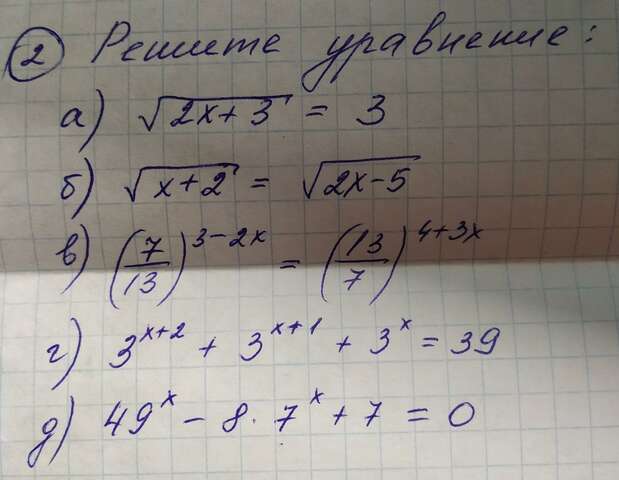 ② Решите уравнение:
а) √(2x+3) = 3
б) √(x+2) = √(2x-5)
в) (7/13)^(3-2x) = (13/7)^(4+3x)
г) 3^(x+2) + 3^(x+1) + 3^x = 39
д) 49^x - 8·7^x + 7 = 0